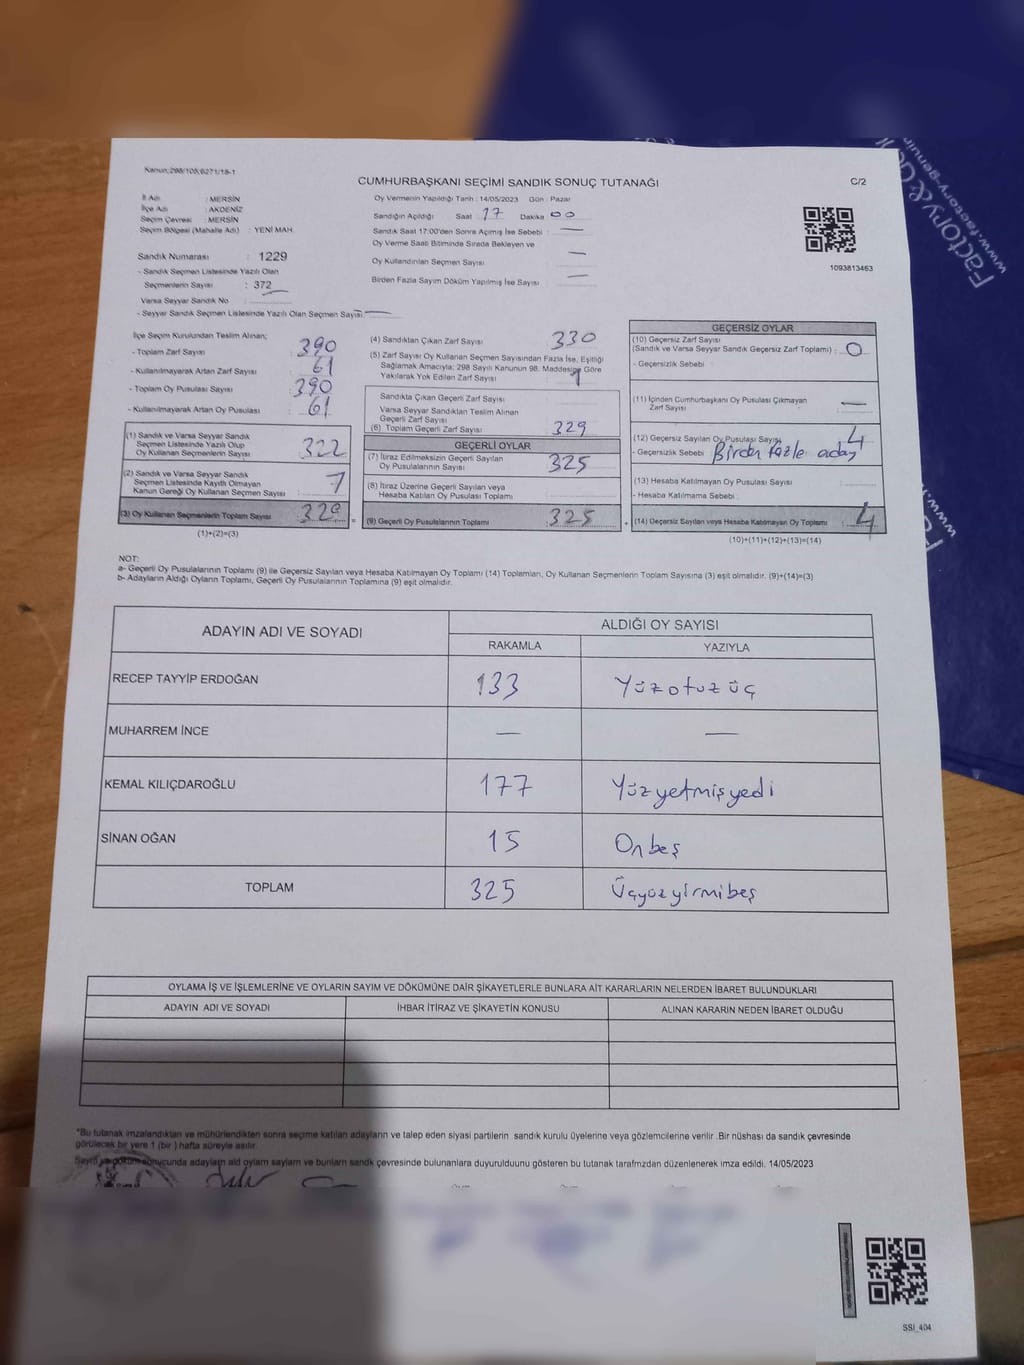 Kanun:298/105;6271/18-1
CUMHURBAŞKANI SEÇİMİ SANDIK SONUÇ TUTANAĞI
C/2
İl Adı : MERSİN
İlçe Adı : AKDENİZ
Seçim Çevresi : MERSİN
Seçim Bölgesi (Mahalle Adı) : YENİ MAH.
Sandık Numarası : 1229
- Sandık Seçmen Listesinde Yazılı Olan
Seçmenlerin Sayısı : 372
Varsa Seyyar Sandık No :
- Seyyar Sandık Seçmen Listesinde Yazılı Olan Seçmen Sayısı: —
Oy Vermenin Yapıldığı Tarih : 14/05/2023 Gün : Pazar
Sandığın Açıldığı Saat 17 Dakika 00
Sandık Saat 17:00'den Sonra Açılmış İse Sebebi : —
Oy Verme Saati Bitiminde Sırada Bekleyen ve
Oy Kullandırılan Seçmen Sayısı : —
Birden Fazla Sayım Döküm Yapılmış İse Sayısı : —
1093813463
İlçe Seçim Kurulundan Teslim Alınan;
- Toplam Zarf Sayısı : 390
- Kullanılmayarak Artan Zarf Sayısı : 61
- Toplam Oy Pusulası Sayısı : 390
- Kullanılmayarak Artan Oy Pusulası : 61
(1) Sandık ve Varsa Seyyar Sandık
Seçmen Listesinde Yazılı Olup
Oy Kullanan Seçmenlerin Sayısı : 322
(2) Sandık ve Varsa Seyyar Sandık
Seçmen Listesinde Kayıtlı Olmayan
Kanun Gereği Oy Kullanan Seçmen Sayısı : 7
(3) Oy Kullanan Seçmenlerin Toplam Sayısı : 329
(1)+(2)=(3)
(4) Sandıktan Çıkan Zarf Sayısı : 330
(5) Zarf Sayısı Oy Kullanan Seçmen Sayısından Fazla İse, Eşitliği
Sağlamak Amacıyla; 298 Sayılı Kanunun 98. Maddesine Göre
Yakılarak Yok Edilen Zarf Sayısı : 1
Sandıkta Çıkan Geçerli Zarf Sayısı :
Varsa Seyyar Sandıktan Teslim Alınan
Geçerli Zarf Sayısı :
(6) Toplam Geçerli Zarf Sayısı : 329
GEÇERLİ OYLAR
(7) İtiraz Edilmeksizin Geçerli Sayılan
Oy Pusulalarının Sayısı : 325
(8) İtiraz Üzerine Geçerli Sayılan veya
Hesaba Katılan Oy Pusulası Toplamı :
= (9) Geçerli Oy Pusulalarının Toplamı : 325 +
GEÇERSİZ OYLAR
(10) Geçersiz Zarf Sayısı
(Sandık ve Varsa Seyyar Sandık Geçersiz Zarf Toplamı) : 0
- Geçersizlik Sebebi :
(11) İçinden Cumhurbaşkanı Oy Pusulası Çıkmayan
Zarf Sayısı : —
(12) Geçersiz Sayılan Oy Pusulası Sayısı : 4
- Geçersizlik Sebebi : Birden fazla aday
(13) Hesaba Katılmayan Oy Pusulası Sayısı :
- Hesaba Katılmama Sebebi :
(14) Geçersiz Sayılan veya Hesaba Katılmayan Oy Toplamı : 4
(10)+(11)+(12)+(13)=(14)
NOT:
a- Geçerli Oy Pusulalarının Toplamı (9) ile Geçersiz Sayılan veya Hesaba Katılmayan Oy Toplamı (14) Toplamları, Oy Kullanan Seçmenlerin Toplam Sayısına (3) eşit olmalıdır. (9)+(14)=(3)
b- Adayların Aldığı Oyların Toplamı, Geçerli Oy Pusulalarının Toplamına (9) eşit olmalıdır.
ADAYIN ADI VE SOYADI
ALDIĞI OY SAYISI
RAKAMLA YAZIYLA
RECEP TAYYİP ERDOĞAN 133 Yüzotuzüç
MUHARREM İNCE — —
KEMAL KILIÇDAROĞLU 177 Yüzyetmişyedi
SİNAN OĞAN 15 Onbeş
TOPLAM 325 Üçyüzyirmibeş
OYLAMA İŞ VE İŞLEMLERİNE VE OYLARIN SAYIM VE DÖKÜMÜNE DAİR ŞİKAYETLERLE BUNLARA AİT KARARLARIN NELERDEN İBARET BULUNDUKLARI
ADAYIN ADI VE SOYADI İHBAR İTİRAZ VE ŞİKAYETİN KONUSU ALINAN KARARIN NEDEN İBARET OLDUĞU
*Bu tutanak imzalandıktan ve mühürlendikten sonra seçime katılan adayların ve talep eden siyasi partilerin sandık kurulu üyelerine veya gözlemcilerine verilir .Bir nüshası da sandık çevresinde
görülecek bir yere 1 (bir ) hafta süreyle asılır.
sonucunda adayların aldı oyların sayıların ve bunların sandık çevresinde bulunanlara duyurulduunu gösteren bu tutanak tarafımzdan düzenlenerek imza edildi. 14/05/2023
SSI_404
Factory &
www.factory-genuin